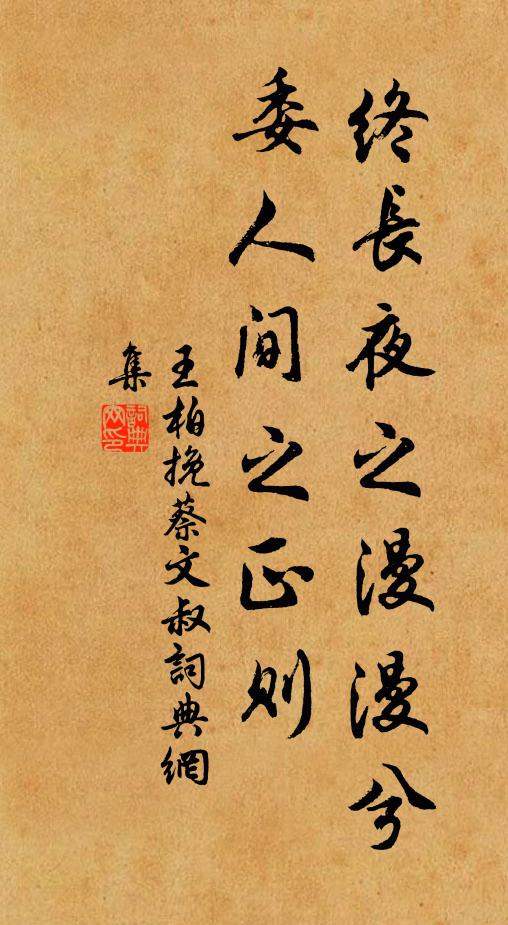 終長夜之漫漫兮
委人間之正則
王柏挽蔡文叔詞典網
集
詞典
网印